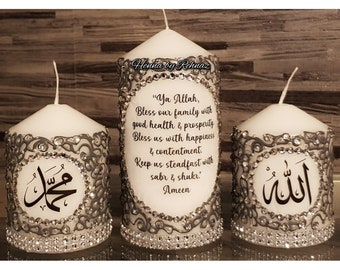 Henna by Rehnaz
"Ya Allah,
Bless our family with
good health & prosperity.
Bless us with happiness
& contentment.
Keep us steadfast with
sabr & shukr.'
Ameen
محمد
الله